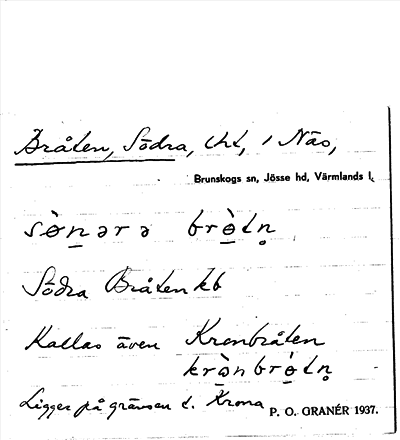 Bråten, Södra, cht, i Näs,
Brunskogs sn, Jösse hd, Värmlands l.
sø̀nərə brò̱tn̥
Södra Bråten kb
Kallas även Kronbråten
krò̱nbrò̱tn̥
Ligger på gränsen t. Krona
P. O. GRANÉR 1937.